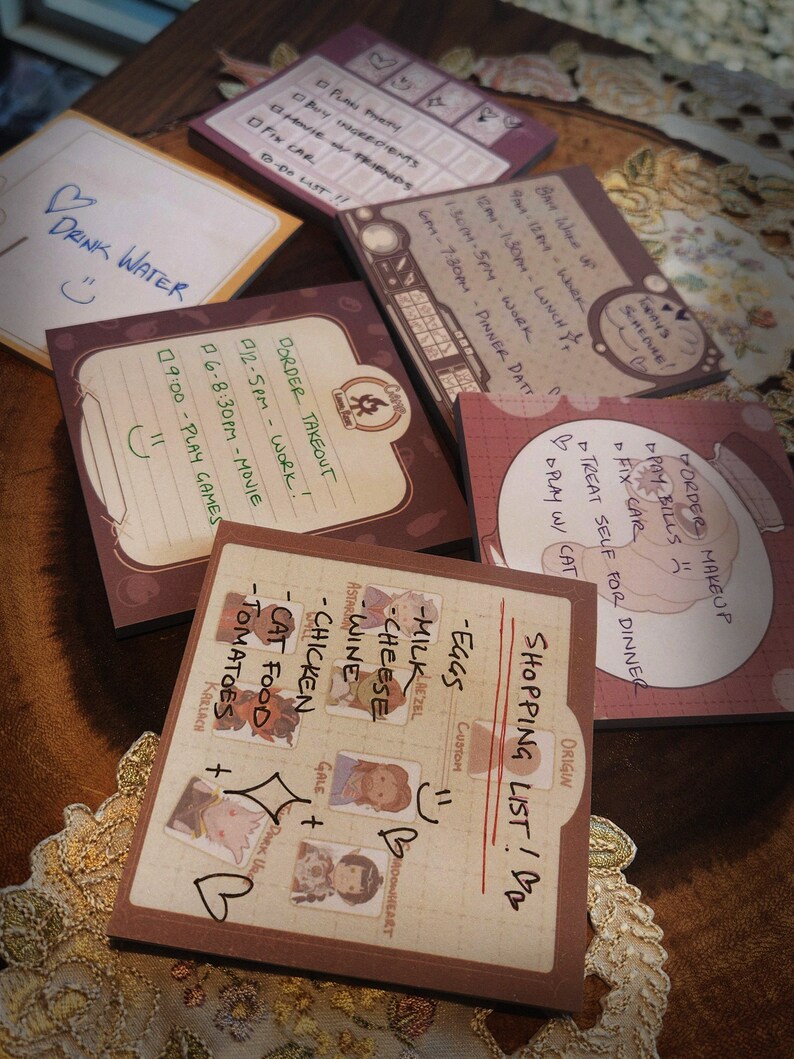 ☐ PLAN PARTY
☐ BUY INGREDIENTS
☐ MOVIE W/ FRIENDS
☐ FIX CAR
TO-DO LIST!!
♡ DRINK WATER
:)
8AM WAKE UP
9AM-12PM - WORK
12PM-1:30PM - LUNCH
1:30PM-5PM - WORK
6PM-7:30PM - DINNER DATE
TODAY'S
SCHEDULE!
☐ORDER TAKEOUT
☐12-5PM - WORK!
☐6-8:30PM - MOVIE
☐9:00 - PLAY GAMES
▷ORDER MAKEUP
▷PAY BILLS
▷FIX CAR
▷TREAT SELF FOR DINNER
♡ ▷PLAY W/ CAT
SHOPPING LIST!
-EGGS
-MILK
-CHEESE
-WINE
-CHICKEN
-CAT FOOD
-TOMATOES
ORIGIN
CUSTOM
ASTARION
LAEZEL
WYLL
GALE
SHADOWHEART
KARLACH
THE DARK URGE